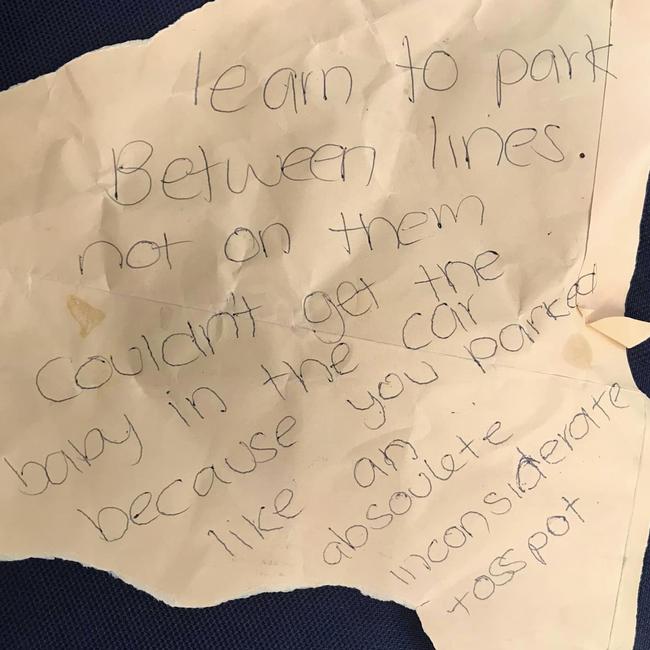 learn to park
Between lines.
not on them
Couldn't get the
baby in the car
because you parked
like an
absoulete
inconsiderate
tosspot.